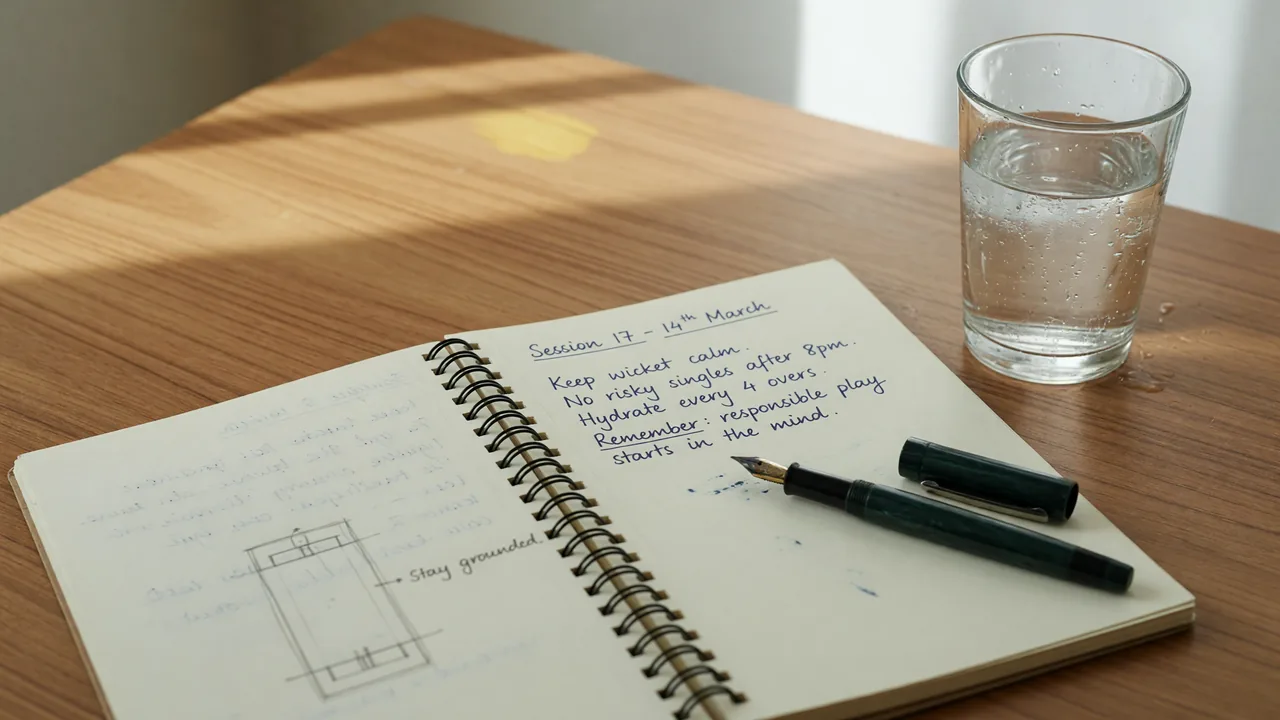 Stay grounded.
Session 17 – 14th March
Keep wicket calm.
No risky singles after 8pm.
Hydrate every 4 overs.
Remember: responsible play
starts in the mind.